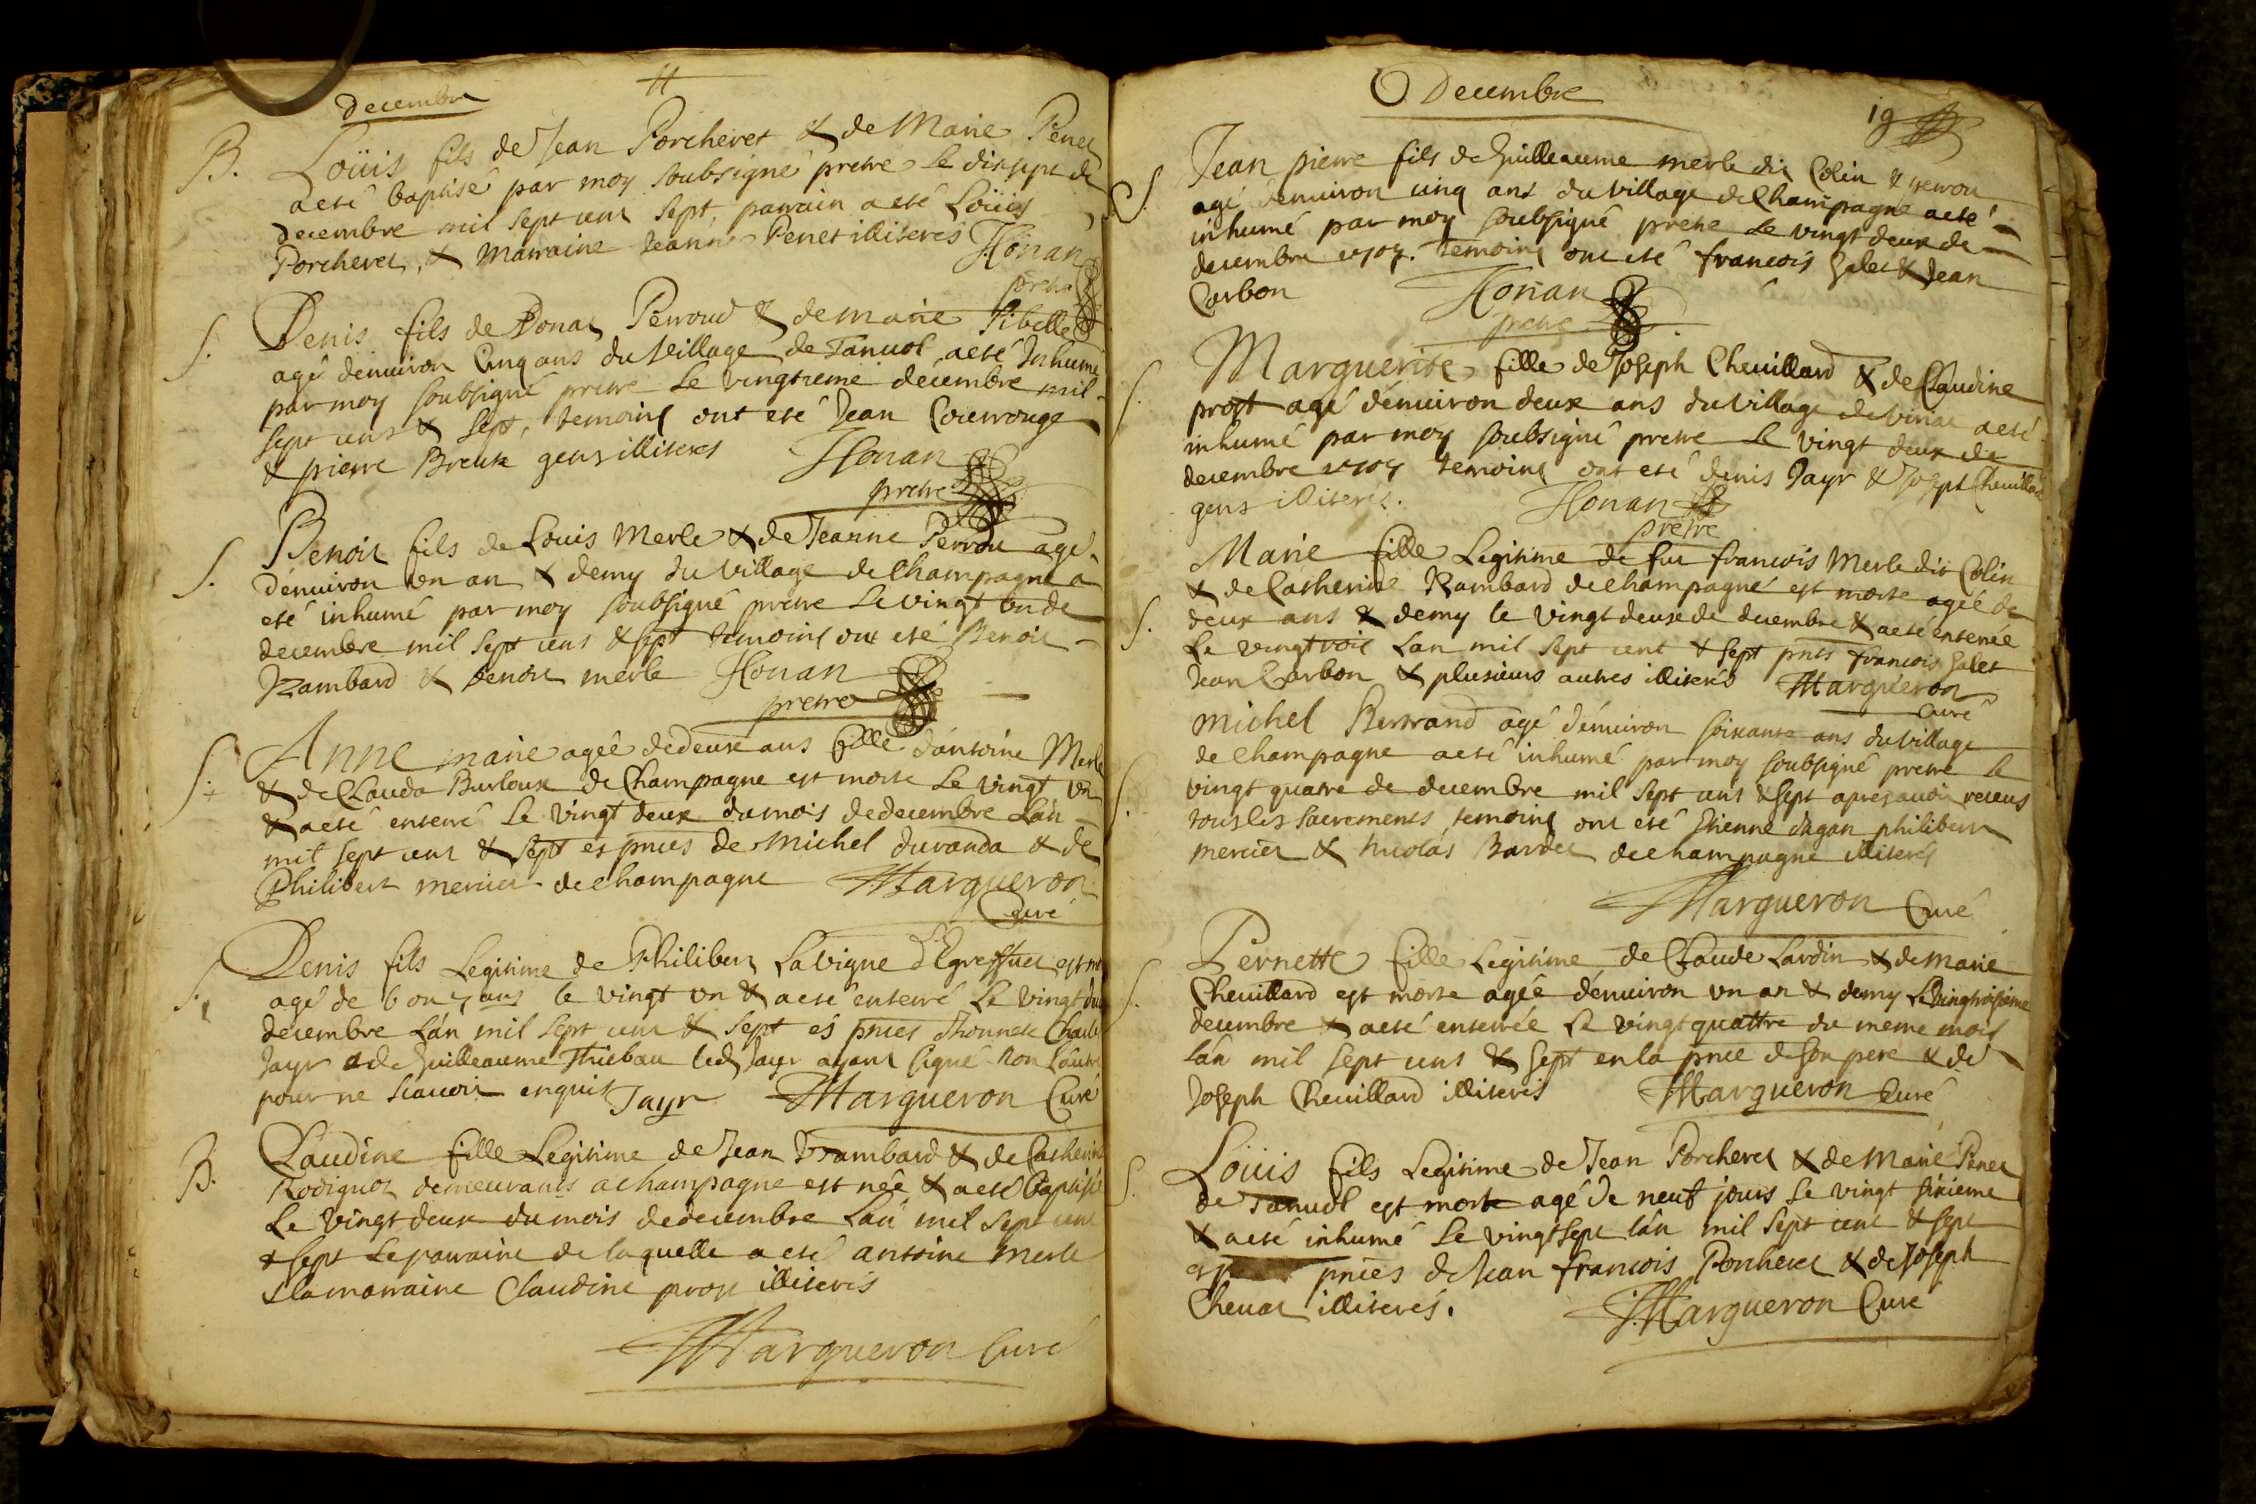 decembre
B. Loüis fils de Jean Porcheret & de Marie Penet
a eté baptisé par moy soubsigné pretre le dixsept de
decembre mil sept cent sept, parrain a eté Loüis
Porcheret, & Marraine Jeanne Penet illiterés Honan
pretre
S. Denis fils de Donat Perroud & de Marie Pibelle
agé d'enuiron Cinq ans du Village de Tanuol a eté Inhumé
par moy soubsigné pretre Le vingtieme decembre mil
sept cens & sept, temoins ont eté Jean
& pierre Breux gens illiteres Honan
pretre
S. Benoit fils de Louis Merle & de Jeanne Perrou agé
d'enuiron un an & demy du Village de Champagne a
eté inhumé par moy soubsigné pretre Le vingt un de
decembre mil sept cens & sept temoins ont eté Benoit
Rambard & Benoit merle Honan
pretre
S. Anne marie ageé de deux ans fille d'antoine Merle
& de Clauda Burloux de Champagne est morte Le vingt vn
& a eté enterré Le vingt deux du mois de decembre L'an
mil sept cent & sept es pnces de Michel duranda & de
Philibert mercier de champagne Margueron
Curé
S. Denis fils Legitime de Philibert Lavigne d'Egreffuel est
agé de 6 ou 7 ans le vingt vn & a eté enterré Le vingt
decembre L'an mil sept cent & sept és pnces d'honnete Charle
Jayr & de Guilleaume Thiebau led Jayr ayant signé non L'autre
pour ne scauoir enquis Jayr Margueron Curé
B. Claudine fille Legitime de Jean Rambard & de Catherine
Rodiguet demeurants a champagne est née & a eté Baptisée
Le vingt deux du mois de decembre L'an mil sept cent
& sept Le parraine de laquelle a eté antoine merle
& la marraine Claudine prost illiterés
Margueron Curé
Decembre
19
S. Jean pierre fils de Guilleaume merle dit Colin &
agé d'enuiron cinq ans du village de Champagne a eté
inhumé par moy soubsigné pretre Le vingt deux de
decembre 1707. temoins ont eté francois Galet & Jean
Carbon Honan
pretre
S. Marguerite fille de Joseph Cheuillard & de Claudine
prost agé d'enuiron deux ans du Village de a eté
inhumé par moy soubsigné pretre Le vingt deux de
decembre 1707 temoins ont eté denis Jayr & Joseph Cheuillard
gens illiterés. Honan
pretre
S. Marie fille Legitime de fue francois Merle dit Colin
& de Catherine Rambard de champagne est morte ageé de
deux ans & demy le vingt deux de decembre & a eté enterrée
Le vingtrois L'an mil sept cent & sept pnts francois Galet
Jean Carbon & plusieurs autres illiterés Margueron
Curé
S. Michel Bertrand agé d'enuiron soixante ans du Village
de Champagne a eté inhumé par moy soubsigné pretre le
vingt quatre de decembre mil sept cens & sept apres auoir receus
tous les sacrements, temoins ont eté Etienne dagan philibert
mercier & Nicolas Bardet de champagne illiterés
Margueron Curé
S. Pernette fille Legitime de Claude Lardin & de Marie
Cheuillard est morte agée d'enuiron vn an & demy Le vingtroisieme
decembre & a eté enterrée Le vingt quattre du meme mois
L'an mil sept cens & sept en la pnce de son pere & de
Joseph Cheuillard illiterés Margueron Curé
S. Loüis fils Legitime de Jean Porcheret & de Marie Penet
de Tanuol est morte agé de neuf jours Le vingt sixieme
& a eté inhumé Le vingt sept L'an mil sept cent & sept
es pnces de Jean francois Porcheret & de Joseph
Cheuat illiterés. Margueron Curé